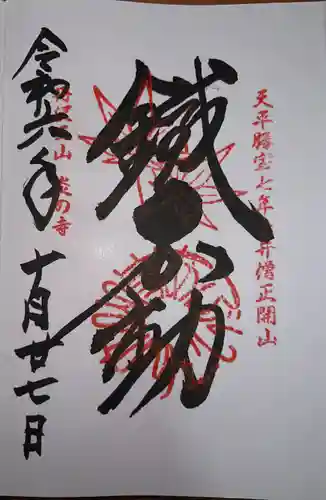 天平勝宝七年 弁僧正開山
鐵不動
山 の寺
令和六年十月廿七日